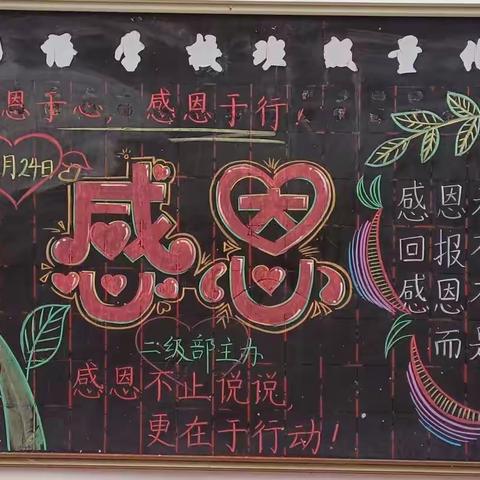 学校班级量化
恩于心，感恩于行！
月24日
感恩
二级部主办
感恩不止说说，
更在于行动！
感恩
回报
感恩
而是